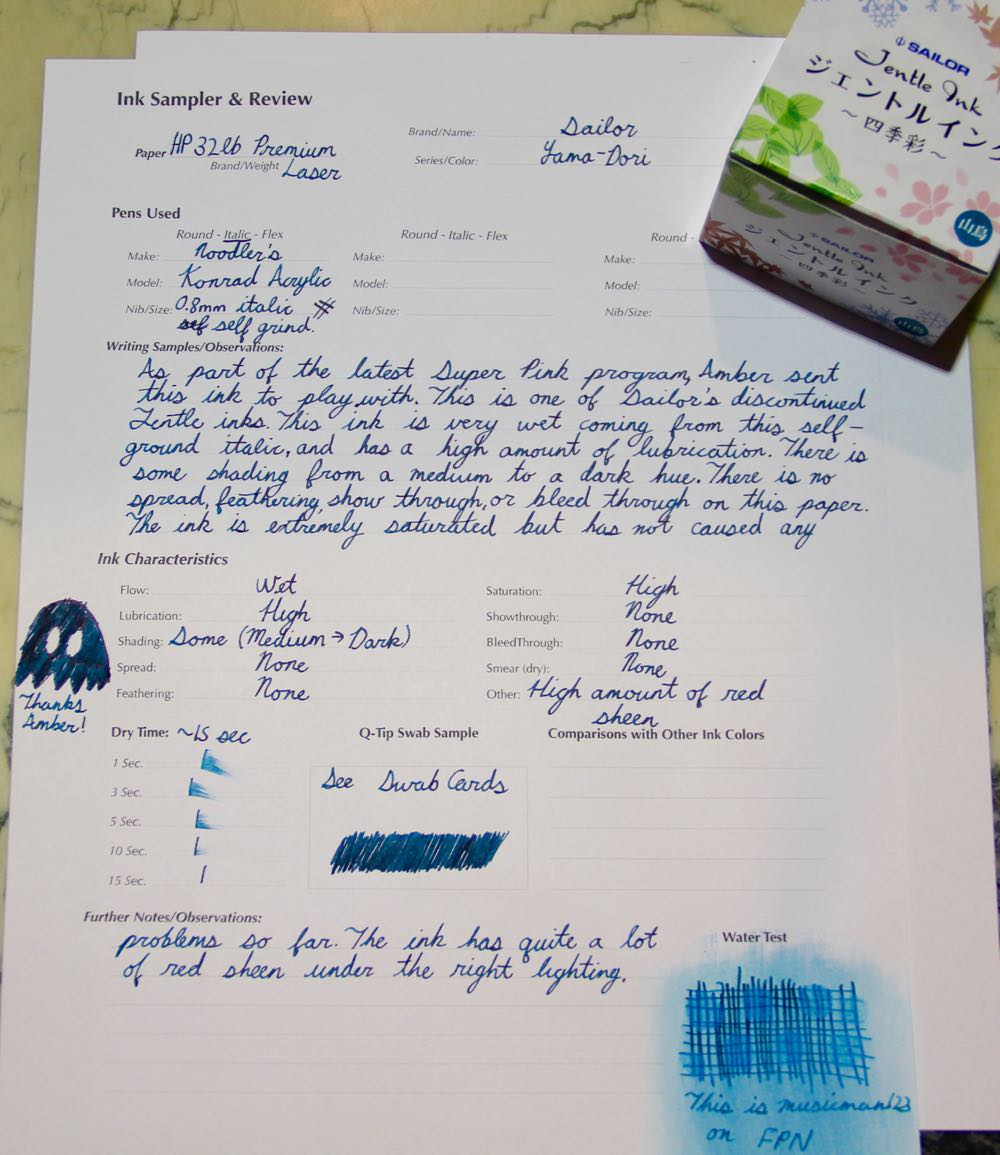 Ink Sampler & Review
Paper HP 32lb Premium
Brand/Weight Laser
Brand/Name: Sailor
Series/Color: Yama-Dori
SAILOR
Jentle Ink
ジェントルインク
～四季彩～
山鳥
SAILOR
Jentle Ink
ジェントルインク
～四季彩～
山鳥
Pens Used
Round - Italic - Flex
Round - Italic - Flex
Round -
Make: Noodler's
Make:
Make:
Model: Konrad Acrylic
Model:
Model:
Nib/Size: 0.8mm italic #
self grind.
Nib/Size:
Nib/Size:
Writing Samples/Observations:
As part of the latest Super Pink program, Amber sent
this ink to play with. This is one of Sailor's discontinued
Jentle inks. This ink is very wet coming from this self-
ground italic, and has a high amount of lubrication. There is
some shading from a medium to a dark hue. There is no
spread, feathering, show through, or bleed through on this paper.
The ink is extremely saturated but has not caused any
Ink Characteristics
Flow: Wet
Saturation: High
Lubrication: High
Showthrough: None
Shading: Some (Medium → Dark)
BleedThrough: None
Spread: None
Smear (dry): None
Feathering: None
Other: High amount of red
sheen
Thanks
Amber!
Dry Time: ~15 sec
1 Sec.
3 Sec.
5 Sec.
10 Sec.
15 Sec.
Q-Tip Swab Sample
See Swab Cards
Comparisons with Other Ink Colors
Further Notes/Observations:
problems so far. The ink has quite a lot
of red sheen under the right lighting.
Water Test
This is musicman123
on FPN